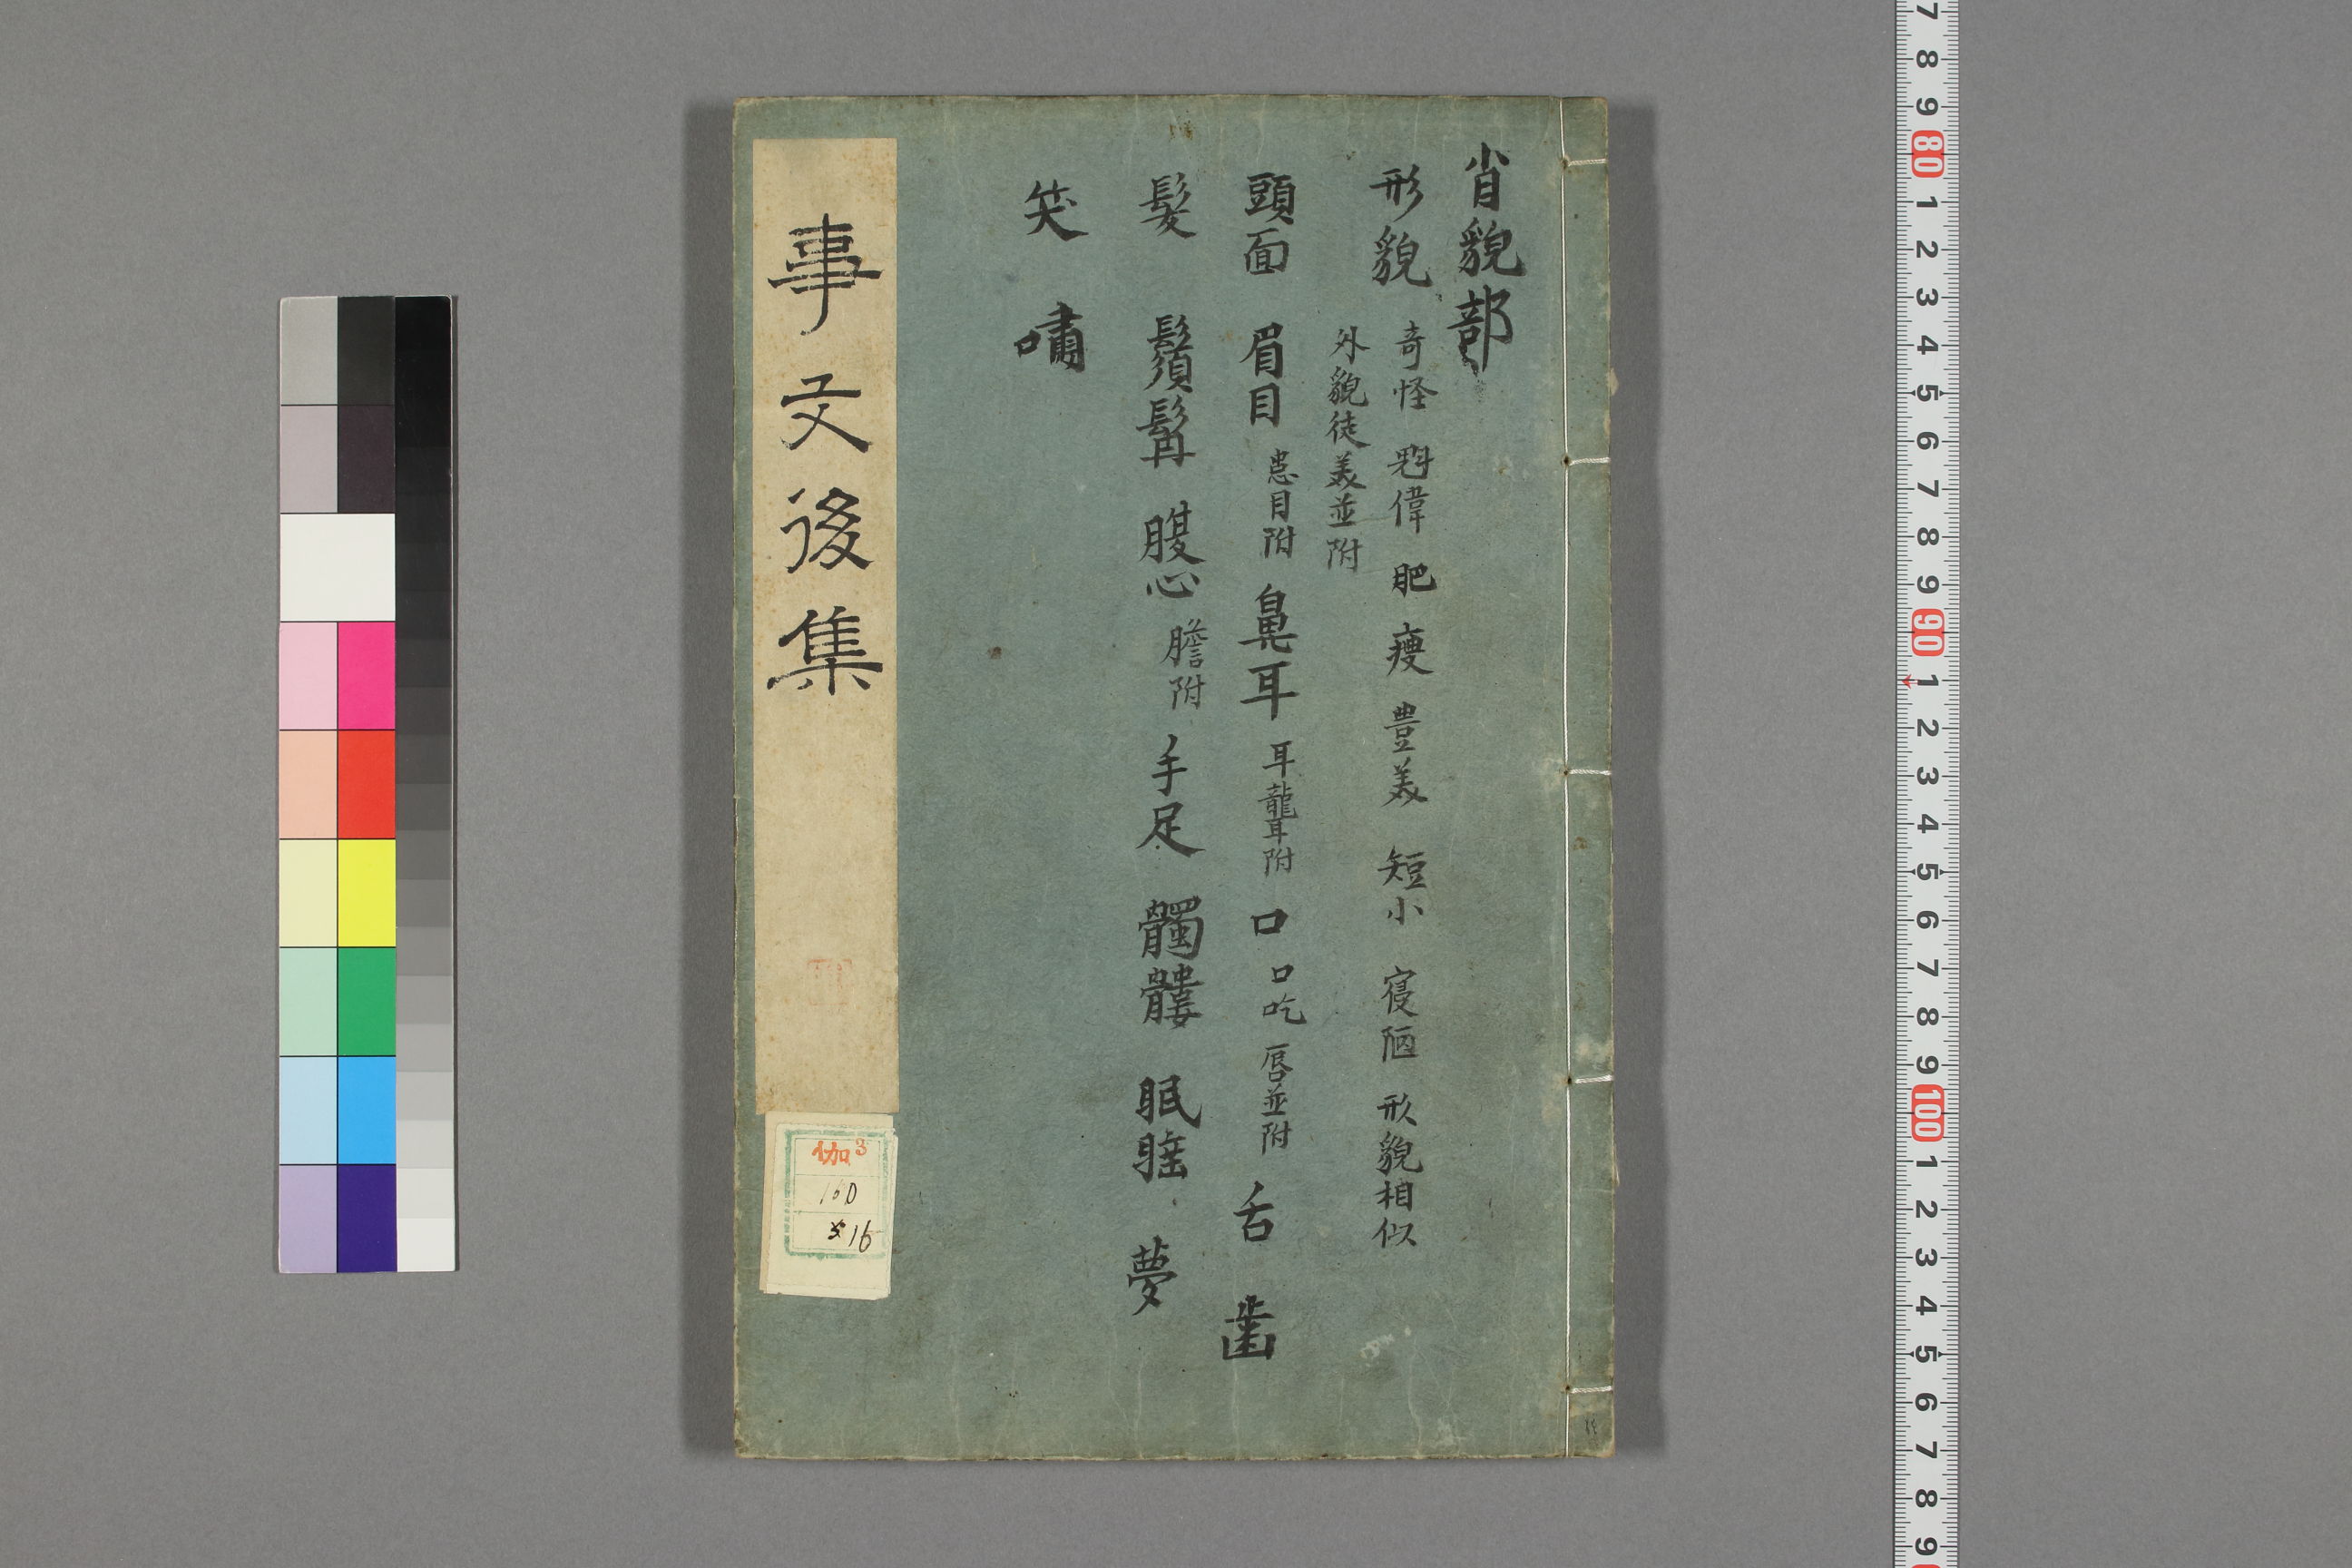 肖貌部
形貌 奇怪 魁偉 肥 瘦 豊美 短小 寝陋 形貌相似
外貌徒美並附
頭面 眉目 患目附 鼻耳 耳聾附 口 口吃 唇並附 舌 歯
髮 鬚髯 腹心 膽附 手足 髑髏 眠睡 夢
笑 嘯
事文後集
伽3
160
16
7
8
9
80
1
2
3
4
5
6
7
8
9
90
1
2
3
4
5
6
7
8
9
100
1
2
3
4
5
6
7
8
9